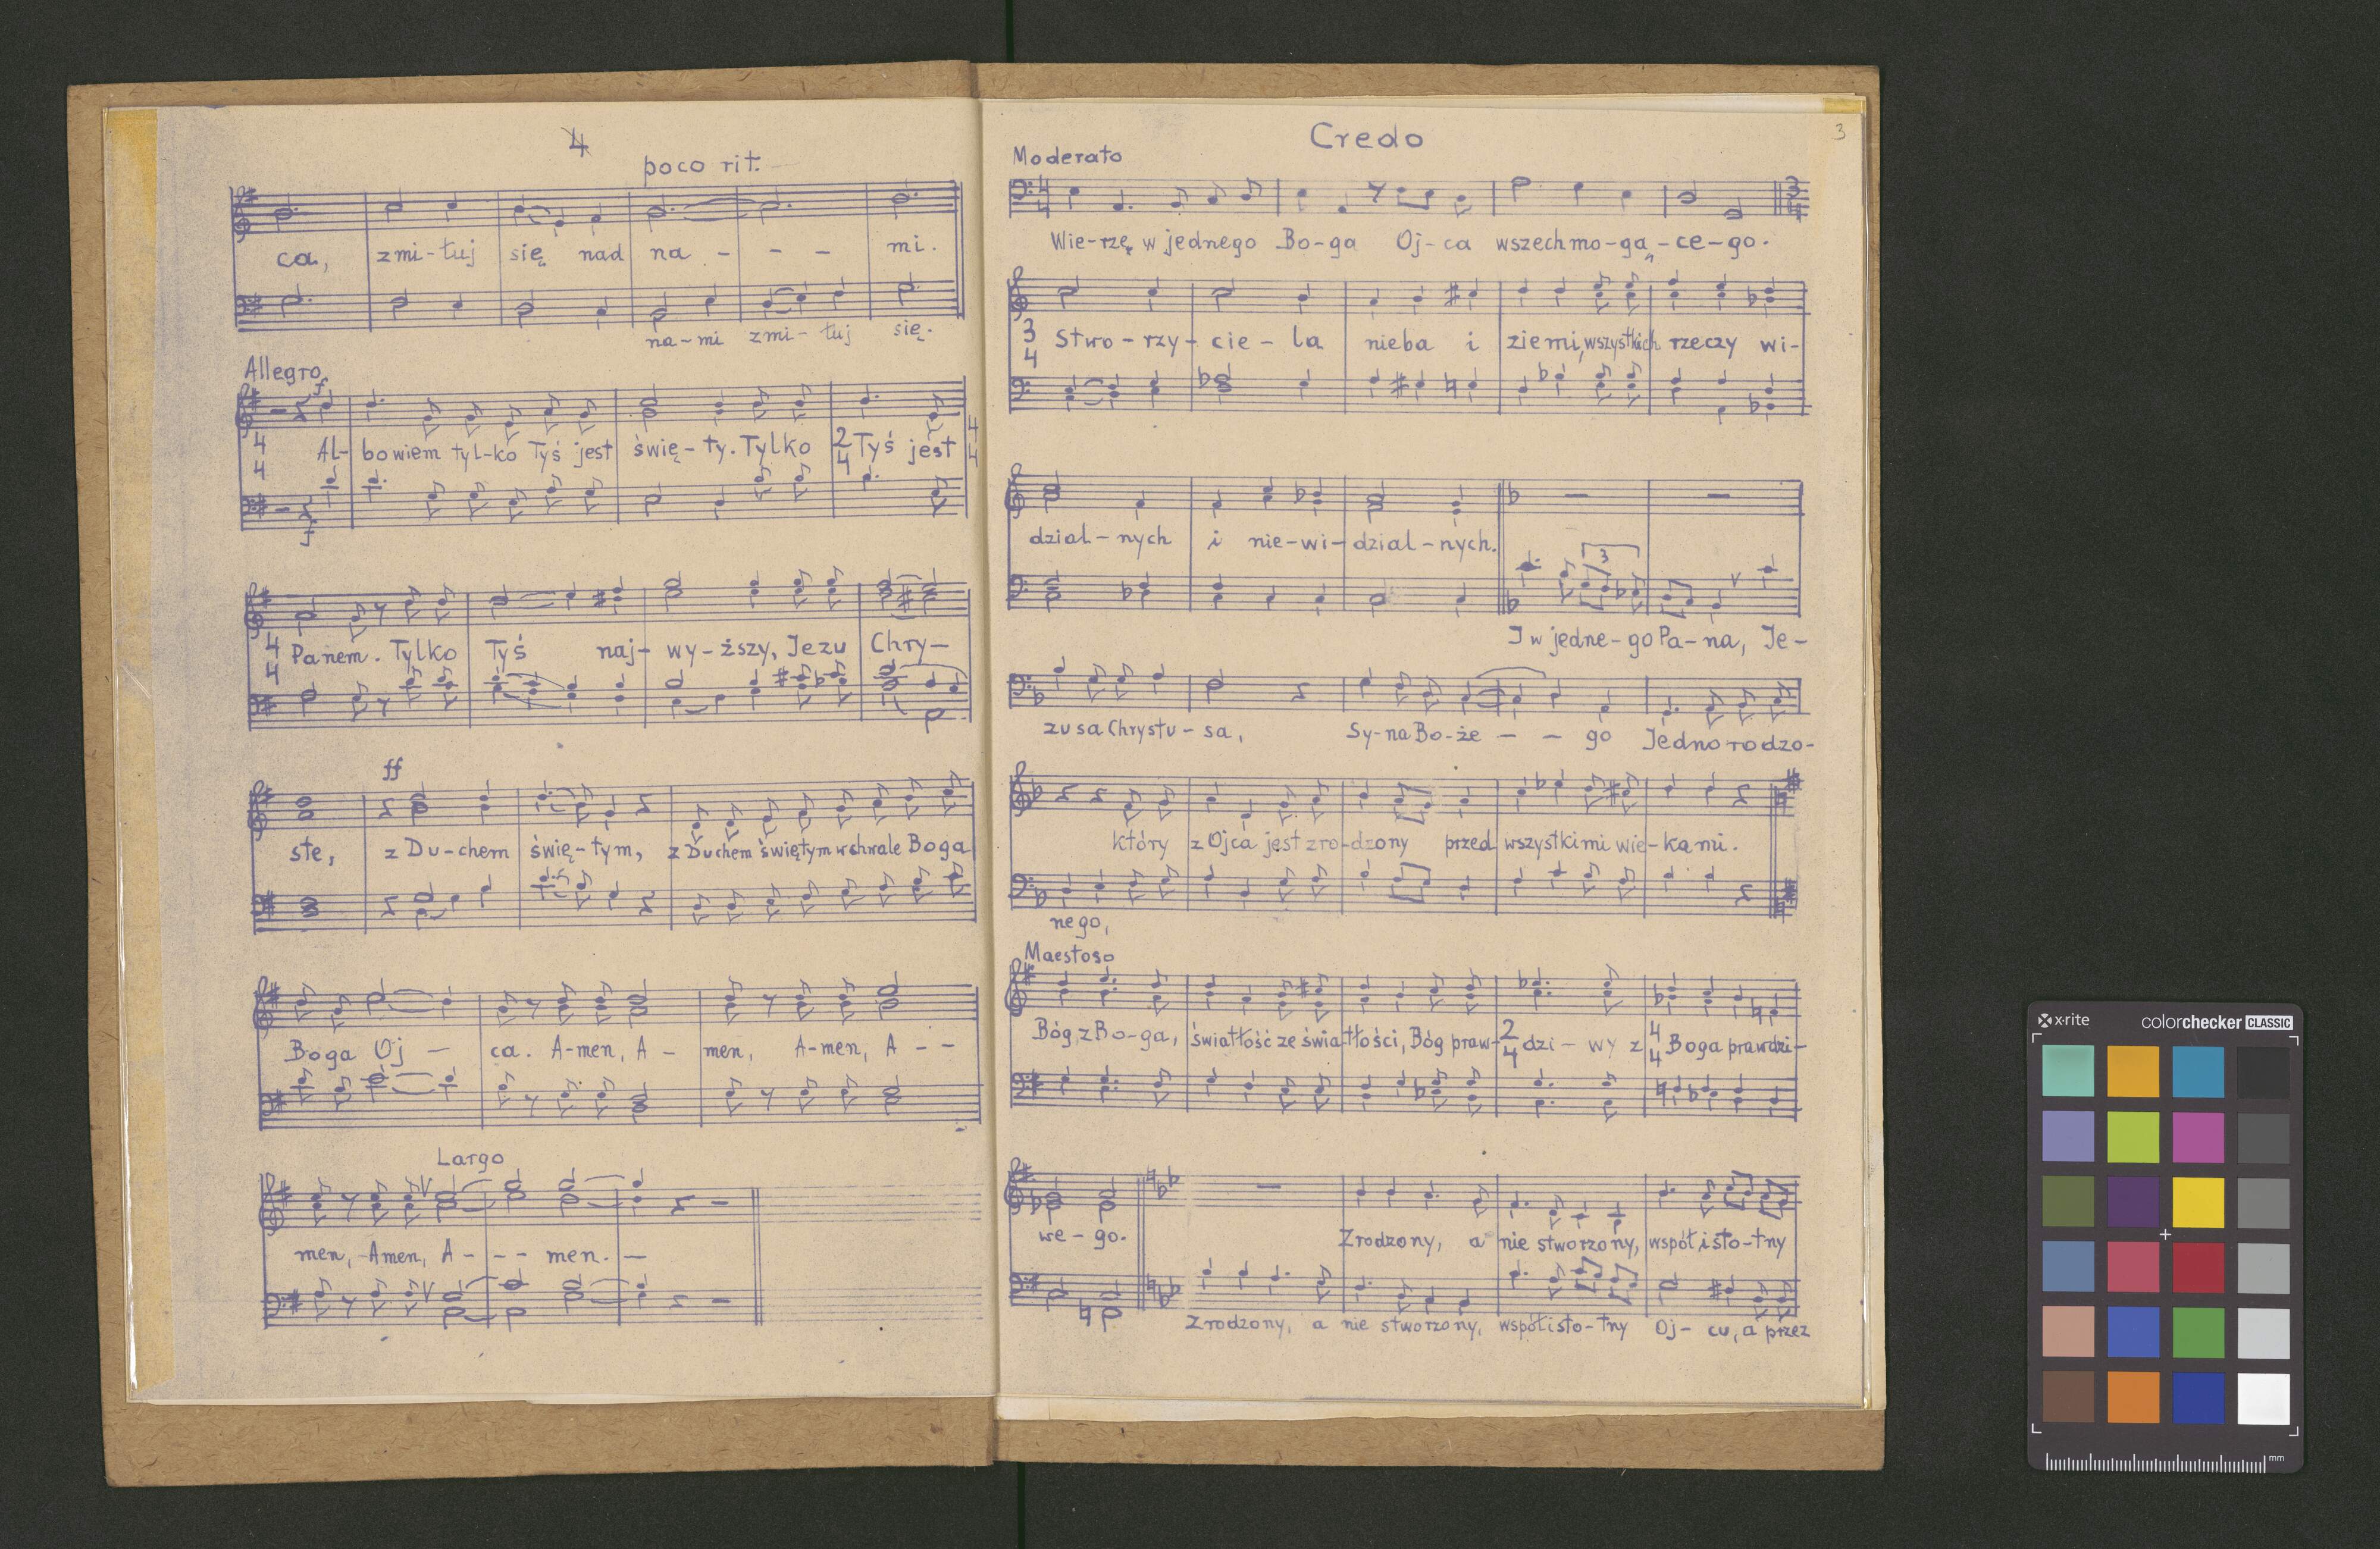 4
poco rit.
ca, zmi-łuj się nad na - - - mi.
na-mi zmi-łuj się.
Allegro
f
4 4 Al- bowiem tyl-ko Tyś jest świę-ty. Tylko 2 4 Tyś jest 4 4
f
4 4 Panem. Tylko Tyś naj- wy-ższy, Jezu Chry-
ff
ste, z Du-chem świę-tym, z Duchem świętym w chwale Boga
Boga Oj - ca. A-men, A - men, A-men, A - -
Largo
men, -Amen, A - - - men. -
3
Credo
Moderato
4 4 3 4
Wie-rzę w jednego Bo-ga Oj-ca wszechmo-gą-ce-go.
3 4 Stwo-rzy-cie-la nieba i ziemi, wszystkich rzeczy wi-
dzial-nych i nie-wi-dzial-nych.
3
I w jedne-go Pa-na, Je-
zusa Chrystu-sa, Sy-na Bo-że - - go Jednorodzo-
który z Ojca jest zro-dzony przed wszystkimi wie-kami.
nego,
Maestoso
Bóg z Bo-ga, światłość ze świa-tłości, Bóg praw- 2 4 dzi - wy z 4 4 Boga prawdzi-
we-go. Zrodzony, a nie stworzony, współisto-tny
Zrodzony, a nie stworzony, współisto-tny Oj-cu, a przez
x-rite colorchecker CLASSIC
mm